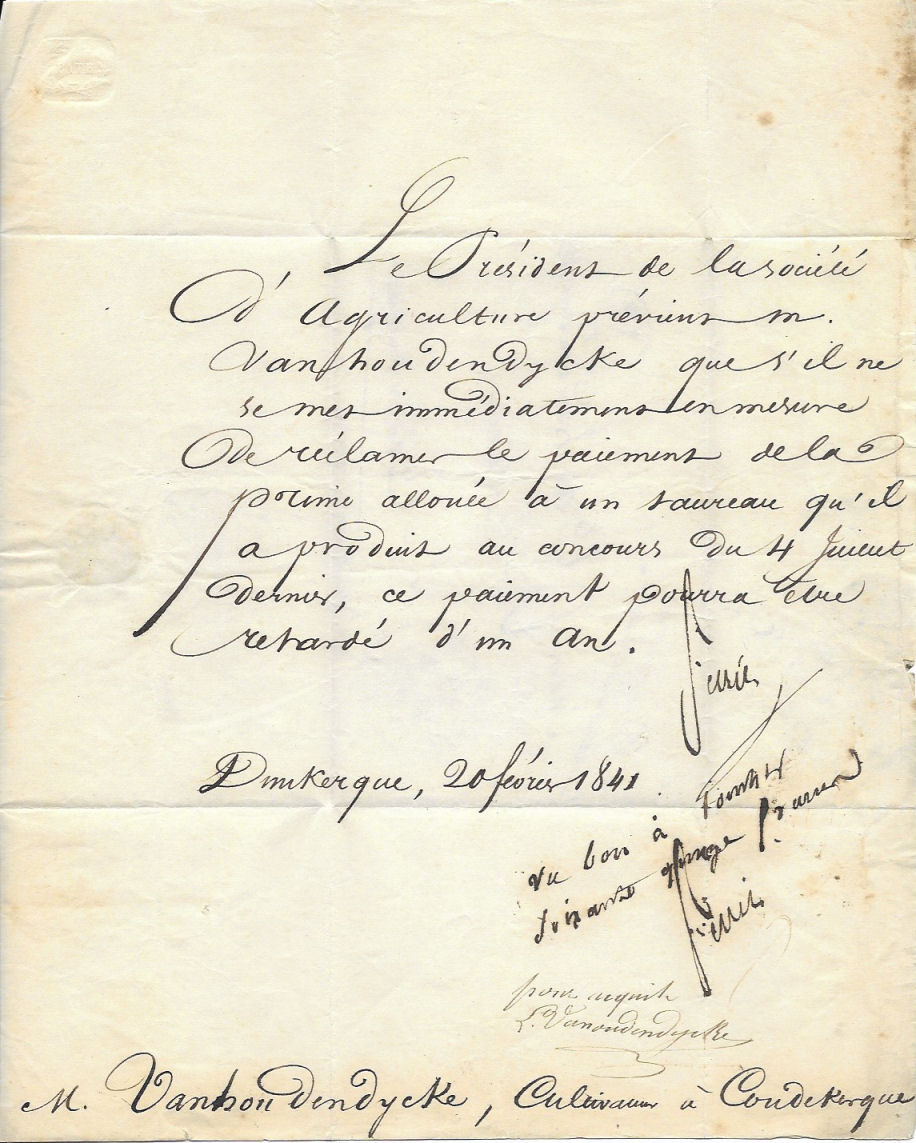 Le Président de la société
d'Agriculture prévient m.
Vanhoudendycke que s'il ne
se met immédiatement en mesure
de réclamer le paiement de la
prime allouée à un taureau qu'il
a produit au concours du 4 Juillet
dernier, ce paiement pourra être
retardé d'un an.
Dunkerque, 20 février 1841.
vu bon à toucher
soixante quinze francs
pour acquit
L. Vanoudendycke
M. Vanhoudendycke, Cultivateur à Coudekerque